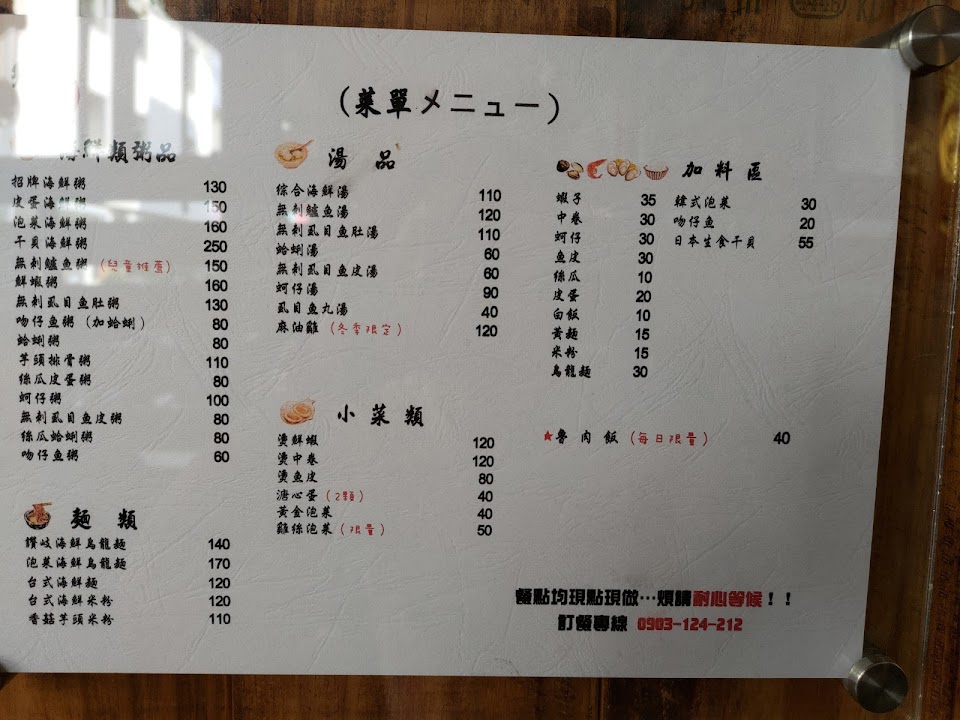 (菜單メニュー)
海鮮類粥品
招牌海鮮粥 130
皮蛋海鮮粥 150
泡菜海鮮粥 160
干貝海鮮粥 250
無刺鱸魚粥 (兒童推薦) 150
鮮蝦粥 160
無刺虱目魚肚粥 130
吻仔魚粥 (加蛤蜊) 80
蛤蜊粥 80
芋頭排骨粥 110
絲瓜皮蛋粥 80
蚵仔粥 100
無刺虱目魚皮粥 80
絲瓜蛤蜊粥 80
吻仔魚粥 60
麵類
讚岐海鮮烏龍麵 140
泡菜海鮮烏龍麵 170
台式海鮮麵 120
台式海鮮米粉 120
香菇芋頭米粉 110
湯品
綜合海鮮湯 110
無刺鱸魚湯 120
無刺虱目魚肚湯 110
蛤蜊湯 60
無刺虱目魚皮湯 60
蚵仔湯 90
虱目魚丸湯 40
麻油雞 (冬季限定) 120
小菜類
燙鮮蝦 120
燙中卷 120
燙魚皮 80
溏心蛋 (2顆) 40
黃金泡菜 40
雞絲泡菜 (限量) 50
加料區
蝦子 35
中卷 30
蚵仔 30
魚皮 30
絲瓜 10
皮蛋 20
白飯 10
黃麵 15
米粉 15
烏龍麵 30
韓式泡菜 30
吻仔魚 20
日本生食干貝 55
★魯肉飯 (每日限量) 40
餐點均現點現做…煩請耐心等候！！
訂餐專線 0903-124-212